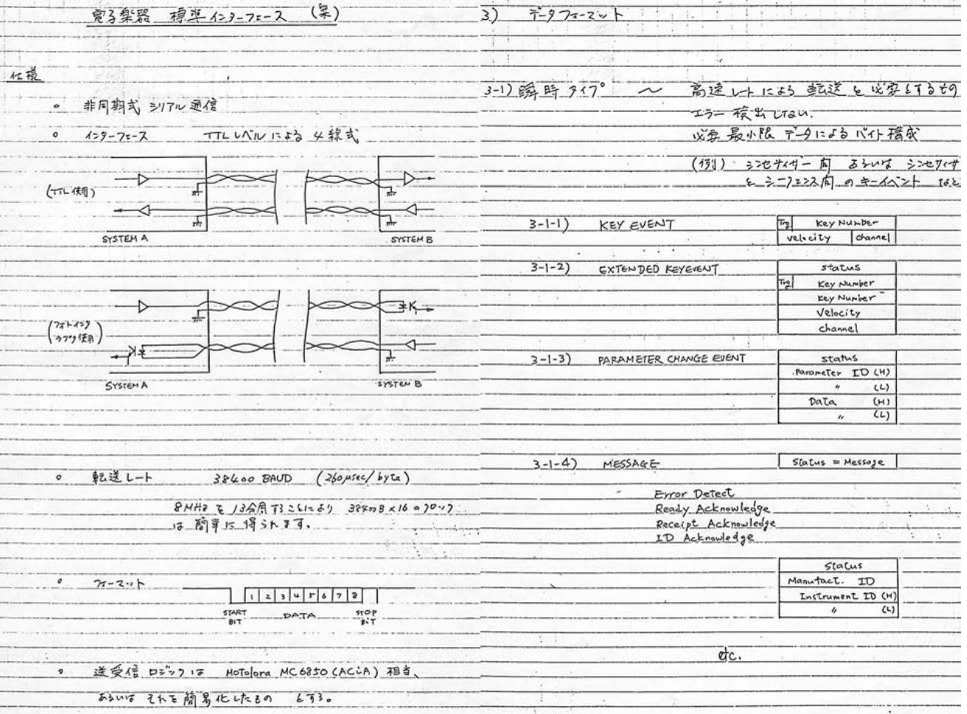 電子楽器 標準インターフェース (案)
仕様
○ 非同期式 シリアル通信
○ インターフェース TTLレベルによる 4線式
(TTL使用)
SYSTEM A SYSTEM B
(フォトインタラプタ使用)
SYSTEM A SYSTEM B
○ 転送レート 38400 BAUD (260μsec/byte)
8MHz を 13分周することにより 38400B×16のクロック
は 簡単に 得られます。
○ フォーマット
1 2 3 4 5 6 7 8
START BIT DATA STOP BIT
○ 送受信 ロジックは MOTOLORA MC6850 (ACiA) 相当、
あるいは それを簡易化したもの とする。
3) データフォーマット
3-1) 瞬時タイプ 〜 高速レートによる 転送を必要とするもの
エラー検出しない.
必要最小限データによるバイト構成
(例) シンセサイザー間 あるいは シンセサイザ
とシーケンス間のキーイベント など
3-1-1) KEY EVENT
Trg Key Number
velocity channel
3-1-2) EXTENDED KEYEVENT
status
Trg Key Number
Key Number
Velocity
channel
3-1-3) PARAMETER CHANGE EVENT
status
Parameter ID (H)
〃 (L)
Data (H)
〃 (L)
3-1-4) MESSAGE
Status = Message
Error Detect
Ready Acknowledge
Receipt Acknowledge
ID Acknowledge
Status
Manufact. ID
Instrument ID (H)
〃 (L)
etc.